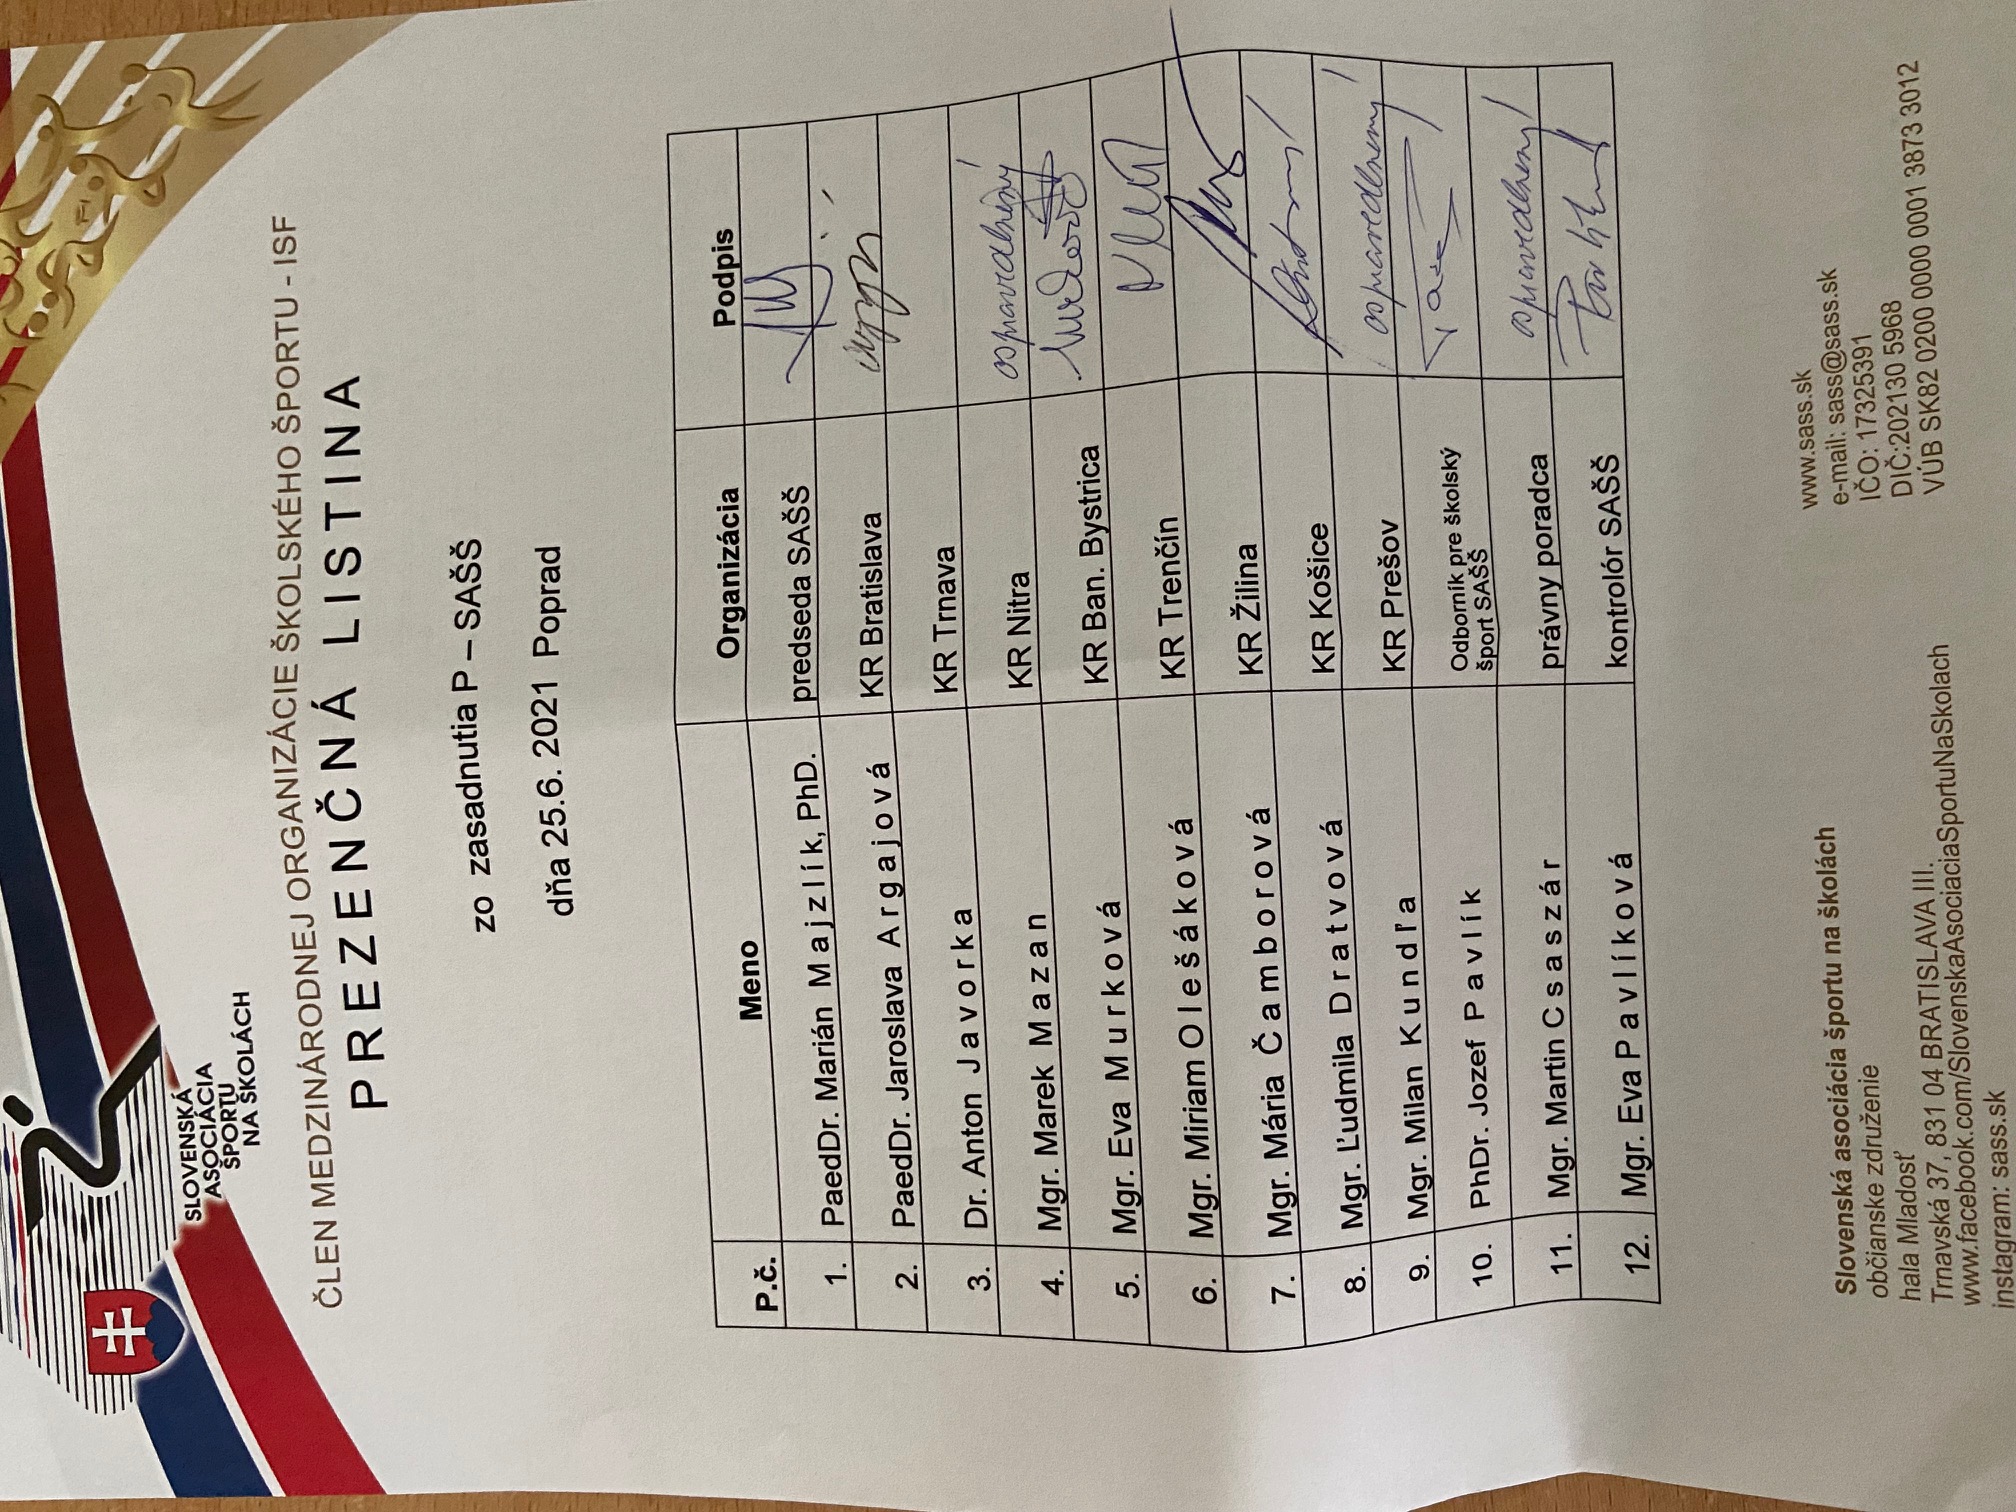 SLOVENSKÁ
ASOCIÁCIA
ŠPORTU
NA ŠKOLÁCH
ČLEN MEDZINÁRODNEJ ORGANIZÁCIE ŠKOLSKÉHO ŠPORTU - ISF
PREZENČNÁ LISTINA
zo zasadnutia P – SAŠŠ
dňa 25.6. 2021 Poprad
P.č. Meno Organizácia Podpis
1. PaedDr. Marián Majzlík, PhD. predseda SAŠŠ
2. PaedDr. Jaroslava Argajová KR Bratislava
3. Dr. Anton Javorka KR Trnava
4. Mgr. Marek Mazan KR Nitra ospravedlnený
5. Mgr. Eva Murková KR Ban. Bystrica
6. Mgr. Miriam Olešáková KR Trenčín
7. Mgr. Mária Čamborová KR Žilina
8. Mgr. Ľudmila Dratvová KR Košice
9. Mgr. Milan Kundľa KR Prešov ospravedlnený
10. PhDr. Jozef Pavlík Odborník pre školský
šport SAŠŠ
11. Mgr. Martin Csaszár právny poradca ospravedlnený
12. Mgr. Eva Pavlíková kontrolór SAŠŠ
Slovenská asociácia športu na školách
občianske združenie
hala Mladosť
Trnavská 37, 831 04 BRATISLAVA III.
www.facebook.com/SlovenskaAsociaciaSportuNaSkolach
instagram: sass.sk
www.sass.sk
e-mail: sass@sass.sk
IČO: 17325391
DIČ:202130 5968
VÚB SK82 0200 0000 0001 3873 3012